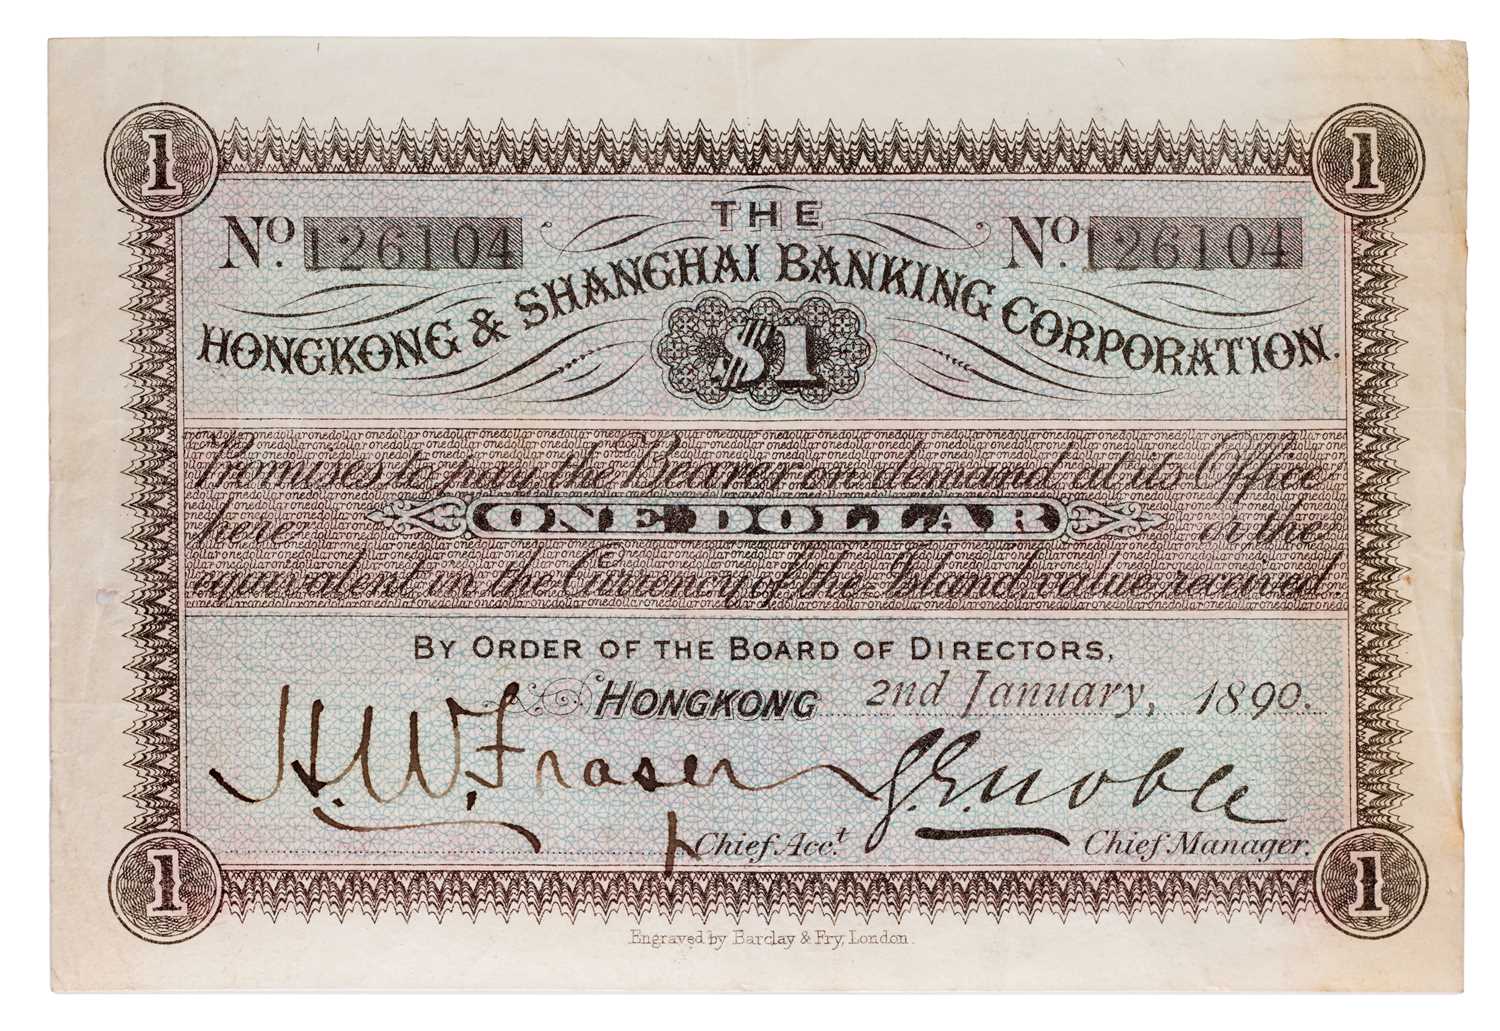 1 1
THE
No. 126104 No. 126104
HONGKONG & SHANGHAI BANKING CORPORATION.
$1
Promises to pay the Bearer on demand at its Office
here ONE DOLLAR or the
equivalent in the Currency of the Island value received
BY ORDER OF THE BOARD OF DIRECTORS,
HONGKONG 2nd January, 1890.
H.W. Fraser G.E. Noble
Chief Acct. Chief Manager.
1 1
Engraved by Barclay & Fry, London.